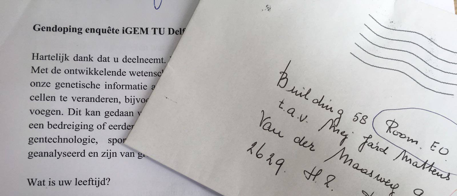 Gendoping enquête iGEM TU Delf
Hartelijk dank dat u deelneemt.
Met de ontwikkelende wetensc
onze genetische informatie a
cellen te veranderen, bijvo
voegen. Dit kan gedaan
een bedreiging of eerder
gentechnologie, spor
geanalyseerd en zijn van g
Wat is uw leeftijd?
Building 58
Room E0
t.a.v. Mej. Jard Matteus
Van der Maasweg 9
2629 HZ